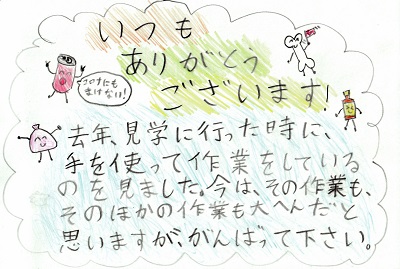 いつも
ありがとう
ございます!
コロナにも
まけない!
去年、見学に行った時に、
手を使って作業をしている
のを見ました。今は、その作業も、
そのほかの作業も大へんだと
思いますが、がんばって下さい。